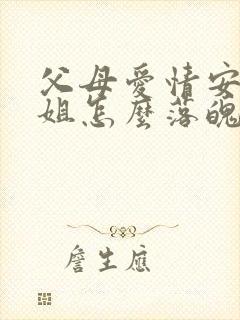 父母愛情安
姐怎麼落魄
詹生應